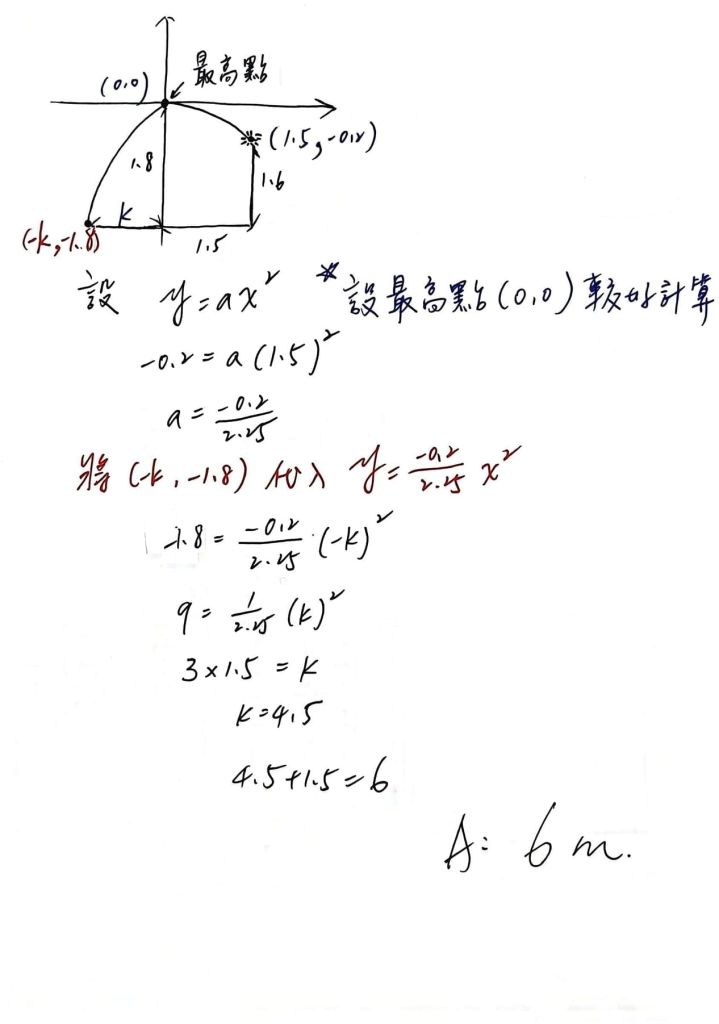 (0,0) 最高點
(1.5,-0.2)
1.8
1.6
k
(-k,-1.8)
1.5
設 y=ax² *設最高點(0,0)較好計算
-0.2=a(1.5)²
a=\frac{-0.2}{2.25}
將(-k,-1.8)代入 y=\frac{-0.2}{2.25}x²
-1.8=\frac{-0.2}{2.25}·(-k)²
9=\frac{1}{2.25}(k)²
3×1.5=k
k=4.5
4.5+1.5=6
A: 6 m.